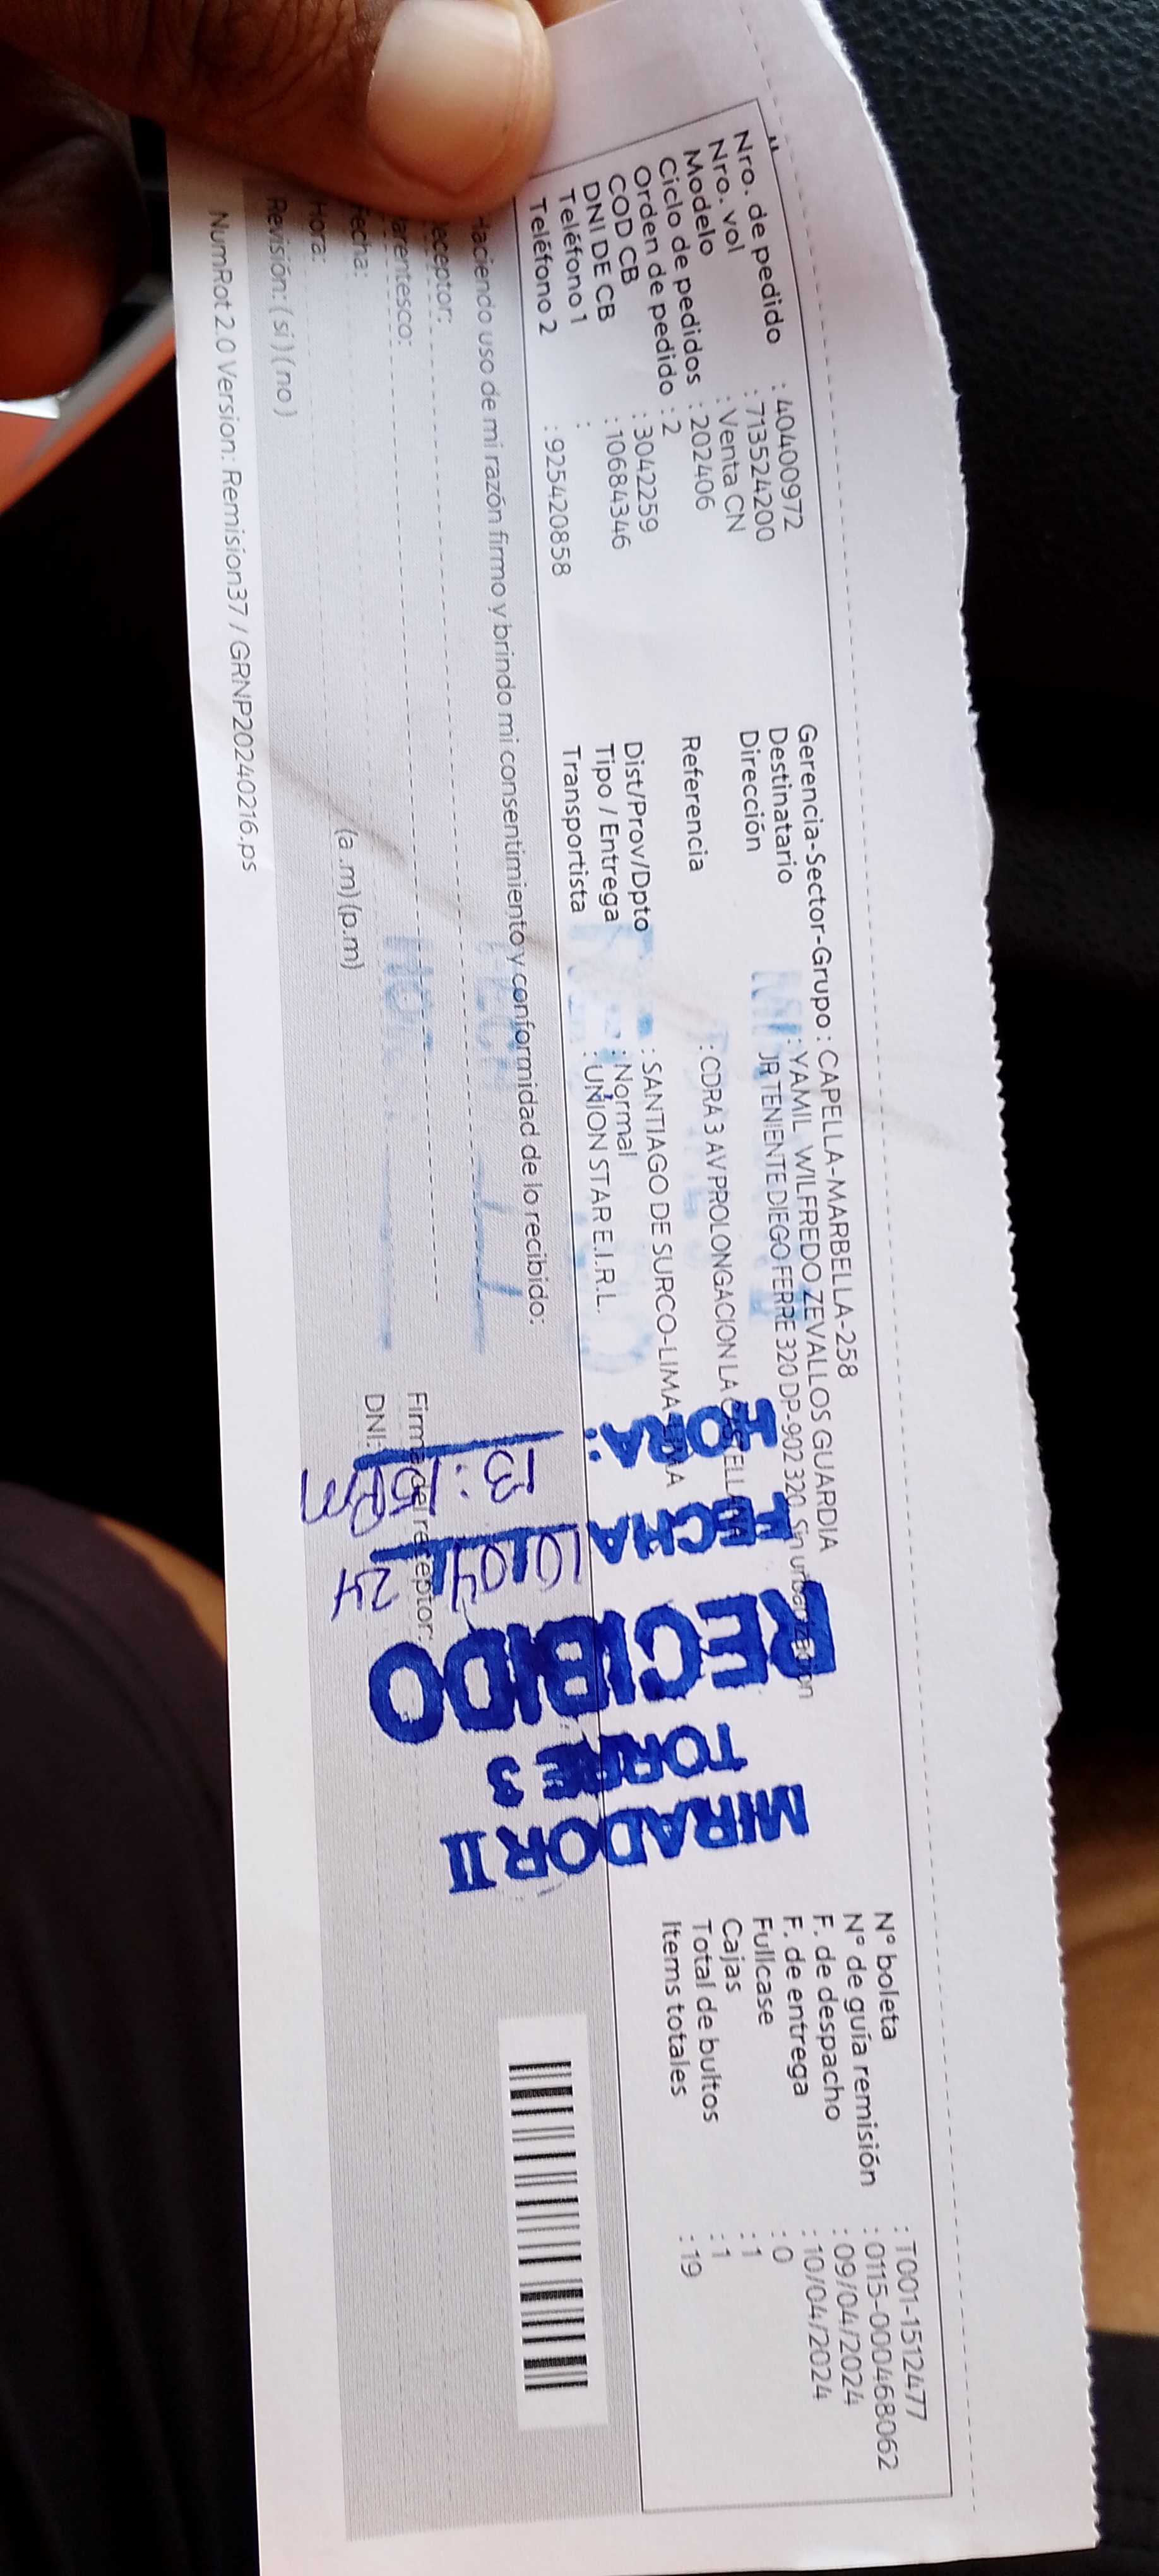 Nro. de pedido : 40400972
Nro. vol : 713524200
Modelo : Venta CN
Ciclo de pedidos : 202406
Orden de pedido : 2
COD CB : 3042259
DNI DE CB : 10684346
Teléfono 1 :
Teléfono 2 : 925420858
Gerencia-Sector-Grupo : CAPELLA-MARBELLA-258
Destinatario : YAMIL WILFREDO ZEVALLOS GUARDIA
Dirección JR TENIENTE DIEGO FERRE 320 DP-902 320, Sin urbanizacion
Referencia : CDRA 3 AV PROLONGACION LA
Dist/Prov/Dpto : SANTIAGO DE SURCO-LIMA-LIMA
Tipo / Entrega : Normal
Transportista : UNION STAR E.I.R.L.
N° boleta : T001-1512477
N° de guía remisión : 0115-000468062
F. de despacho : 09/04/2024
F. de entrega : 10/04/2024
Fullcase : 0
Cajas : 1
Total de bultos : 1
Items totales : 19
Haciendo uso de mi razón firmo y brindo mi consentimiento y conformidad de lo recibido:
Receptor:
Parentesco:
Fecha:
Hora: (a .m) (p.m)
Revisión: ( si ) ( no )
Firma del receptor:
DNI:
NumRot 2.0 Version: Remision37 / GRNP20240216.ps
MIRADOR II
TORRE 3
RECIBIDO
10 04 24